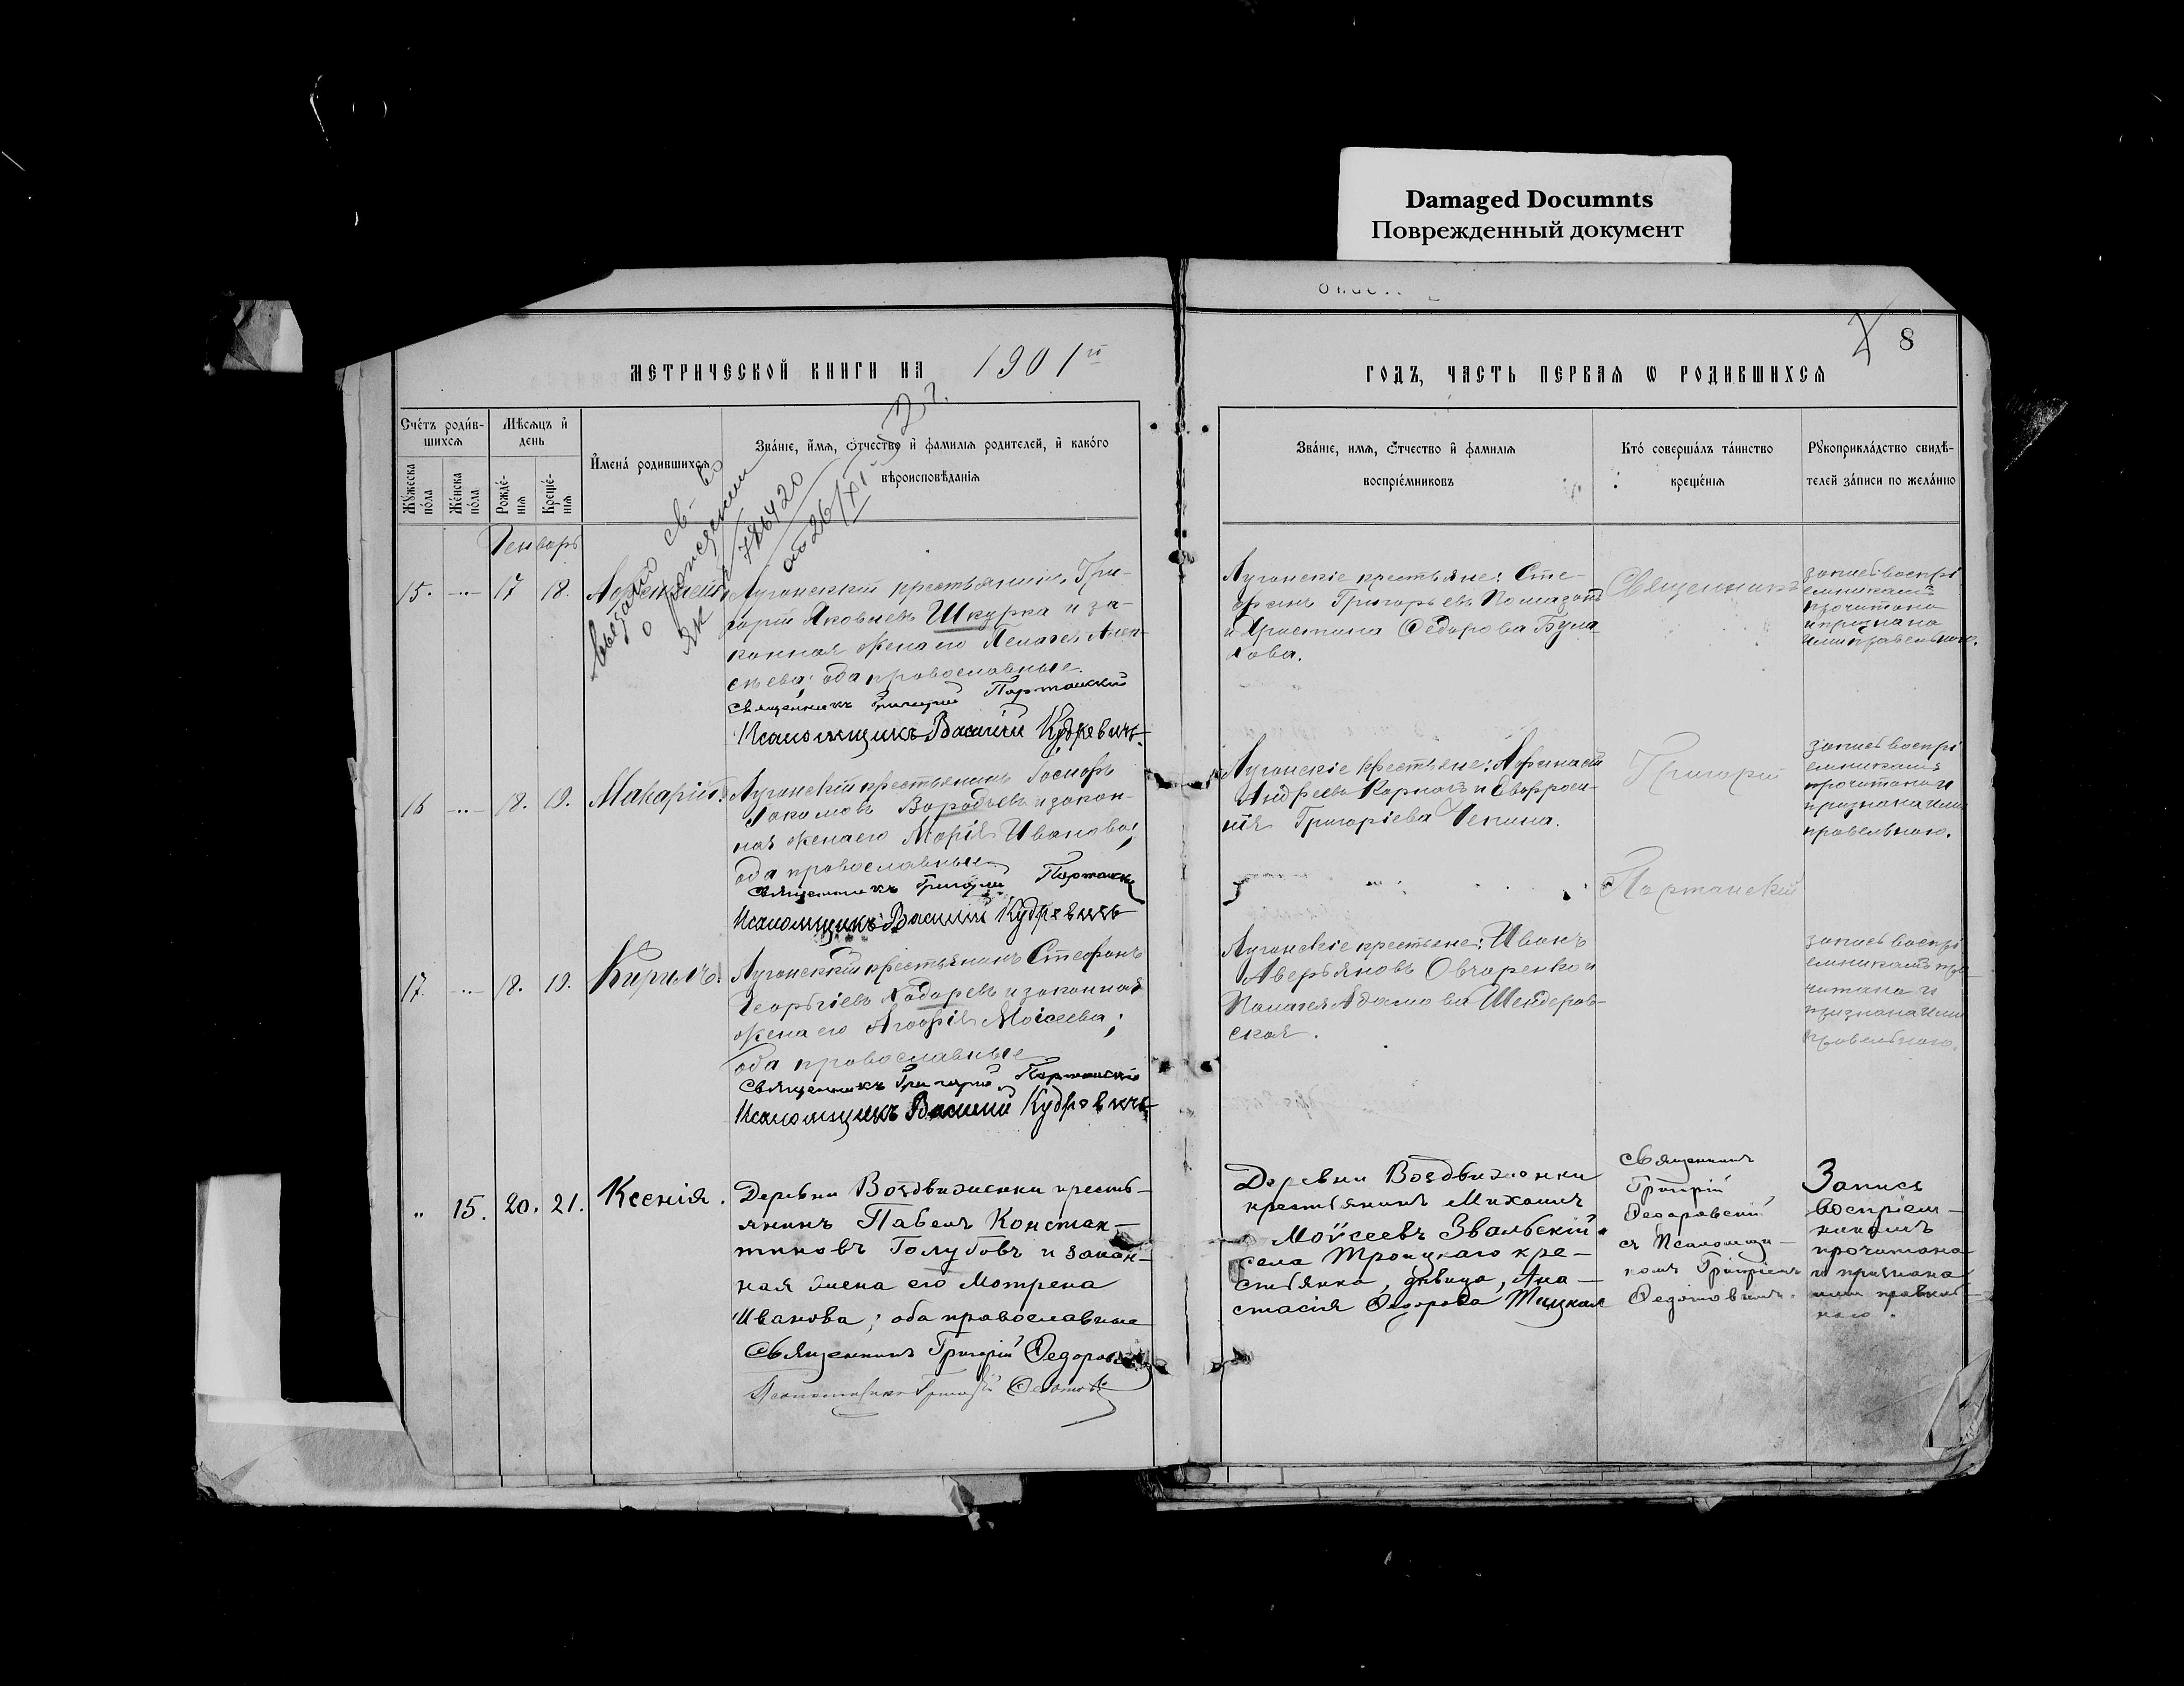 Damaged Documnts
Поврежденный документ
8
МЕТРИЧЕСКОЙ КНИГИ НА 1901 й
ГОДЪ, ЧАСТЬ ПЕРВАЯ Ѡ РОДИВШИХСѦ
Сче́тъ роди́в-
шихсѧ
Мѣ́сѧцъ и҆
день
Мꙋ́жеска по́ла
Же́нска по́ла
Рожде́-
нїѧ
Креще́-
нїѧ
И҆мена̀ родившихсѧ
Зва́нїе, и҆́мѧ, ѻ҆́тчество и҆ фамилїѧ родителей, и҆ како́гѡ
вѣроисповѣ́данїѧ
Зва́нїе, имѧ, ѻ҆́тчество и҆ фамилїѧ
воспрїе́мниковъ
Кто̀ соверша́лъ та́инство
креще́нїѧ
Рꙋкоприкла́дство свидѣ́-
телей за́писи по жела́нїю
Выдано св-во
о рождении
ЯК 786420
от 26/XI
Генварь
15. 17 18.
Луганскій крестьянинъ Гри-
горій Яковлевъ Шкурка и за-
конная жена его Пелагея Алек-
сѣева; оба православные.
Священникъ Григорій Портанскій
Псаломщикъ Василій Кудревичъ
Луганскіе крестьяне: Сте-
фанъ Григорьевъ
и Христина Ѳедорова Була-
кова.
Священникъ
запись воспрі
емникамъ
прочитана
и признана
ими правельною.
16 18. 19. Макарій.
Луганскій крестьянинъ
Воробьевъ и закон-
ная жена его Марія Иванова;
оба православные
Священникъ Григорій Портанскій
Псаломщикъ Василій Кудревичъ
Луганскіе крестьяне: Афанасій
Андреевъ Корнаевъ и Евфроси-
нія Григоріева Чепина.
Григорій
Портанскій
запись воспрі
емникамъ
прочитана и
признана ими
правельною.
17. 18. 19. Кирилъ.
Луганскій крестьянинъ Стефанъ
Георгіевъ и законная
жена его Агафія Моисеева;
оба православные
Священникъ Григорій Портанскій
Псаломщикъ Василій Кудревичъ
Луганскіе крестьяне: Иванъ
Аверьяновъ Овчаренко и
Палагея Адамова Шендеров-
ская.
запись воспрі
емникамъ про-
читана и
признана ими
правельною.
" 15. 20. 21. Ксенія.
Деревни Воздвиженки кресть-
янинъ Павелъ Констан-
тиновъ Голубовъ и закон-
ная жена его Мотрена
Иванова; оба православные
Священникъ Григорій Ѳедоровскій
Псаломщикъ Григорій Ѳедотовъ
Деревни Воздвиженки
крестьянинъ Михаилъ
Моѵсеевъ Звальскій и
села Троицкаго кре-
стьянка, дѣвица, Ана-
стасія Ѳедорова
Священникъ
Григорій
Ѳедоровскій
съ Псаломщи-
комъ Григоріемъ
Ѳедотовымъ.
Запись
воспріем-
никамъ
прочитана
и признана
ими правиль-
ною.